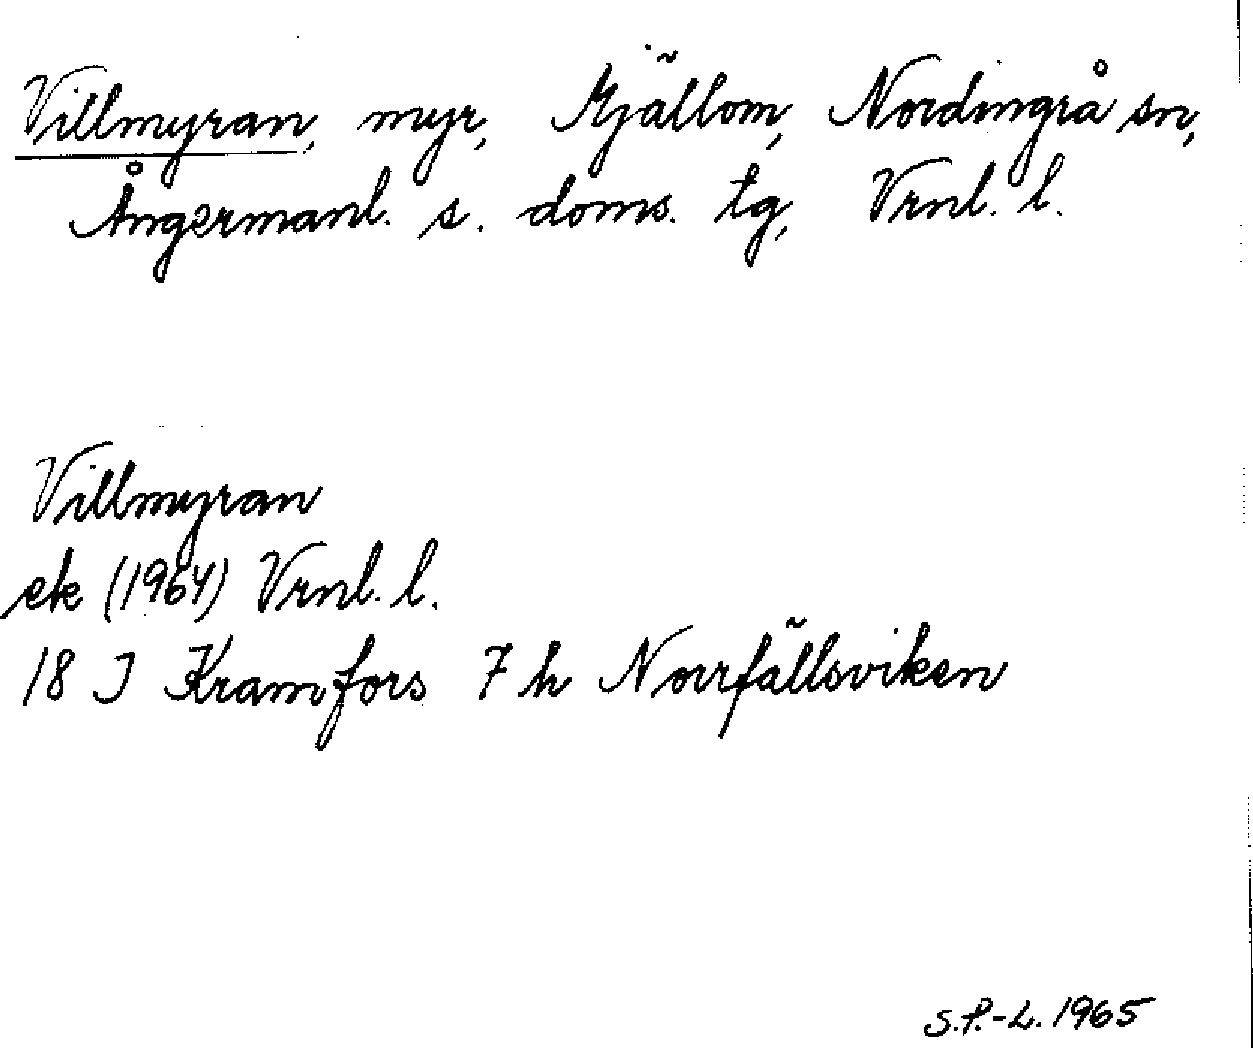 Villmyran, myr, Mjällom, Nordingrå sn,
Ångermanl. s. doms. tg, Vrnl. l.
Villmyran
ek (1964) Vrnl. l.
18 J Kramfors 7 h Norrfällsviken
S.P.-L. 1965